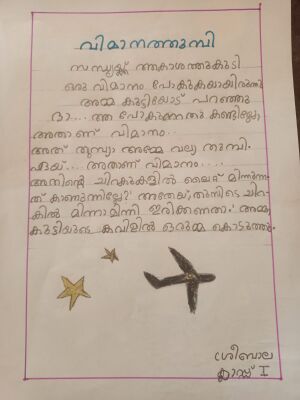 വിമാനത്തുമ്പി
സന്ധ്യയ്ക്ക് ആകാശത്തുകൂടി
ഒരു വിമാനം പോകുകയായിരുന്നു
അമ്മ കുട്ടിയോട് പറഞ്ഞു
ദാ.... ആ പോകുന്നതു കണ്ടില്ലേ,
അതാണ് വിമാനം..
അത് തുമ്പ്യാ അമ്മേ വല്യ തുമ്പി.
ഏയ്... അതാണ് വിമാനം....
അതിന്റെ ചിറകുകളിൽ ലൈറ്റ് മിന്നുന്ന
ത് കാണുന്നില്ലേ? അതേല, തുമ്പിടെ ചിറ
കിൽ മിന്നാമിന്നി ഇരിക്കണതാ.' അമ്മ
കുട്ടിയുടെ കവിളിൽ ഒരുമ്മ കൊടുത്തു.
ശ്രീബാല
ക്ലാസ്സ് I